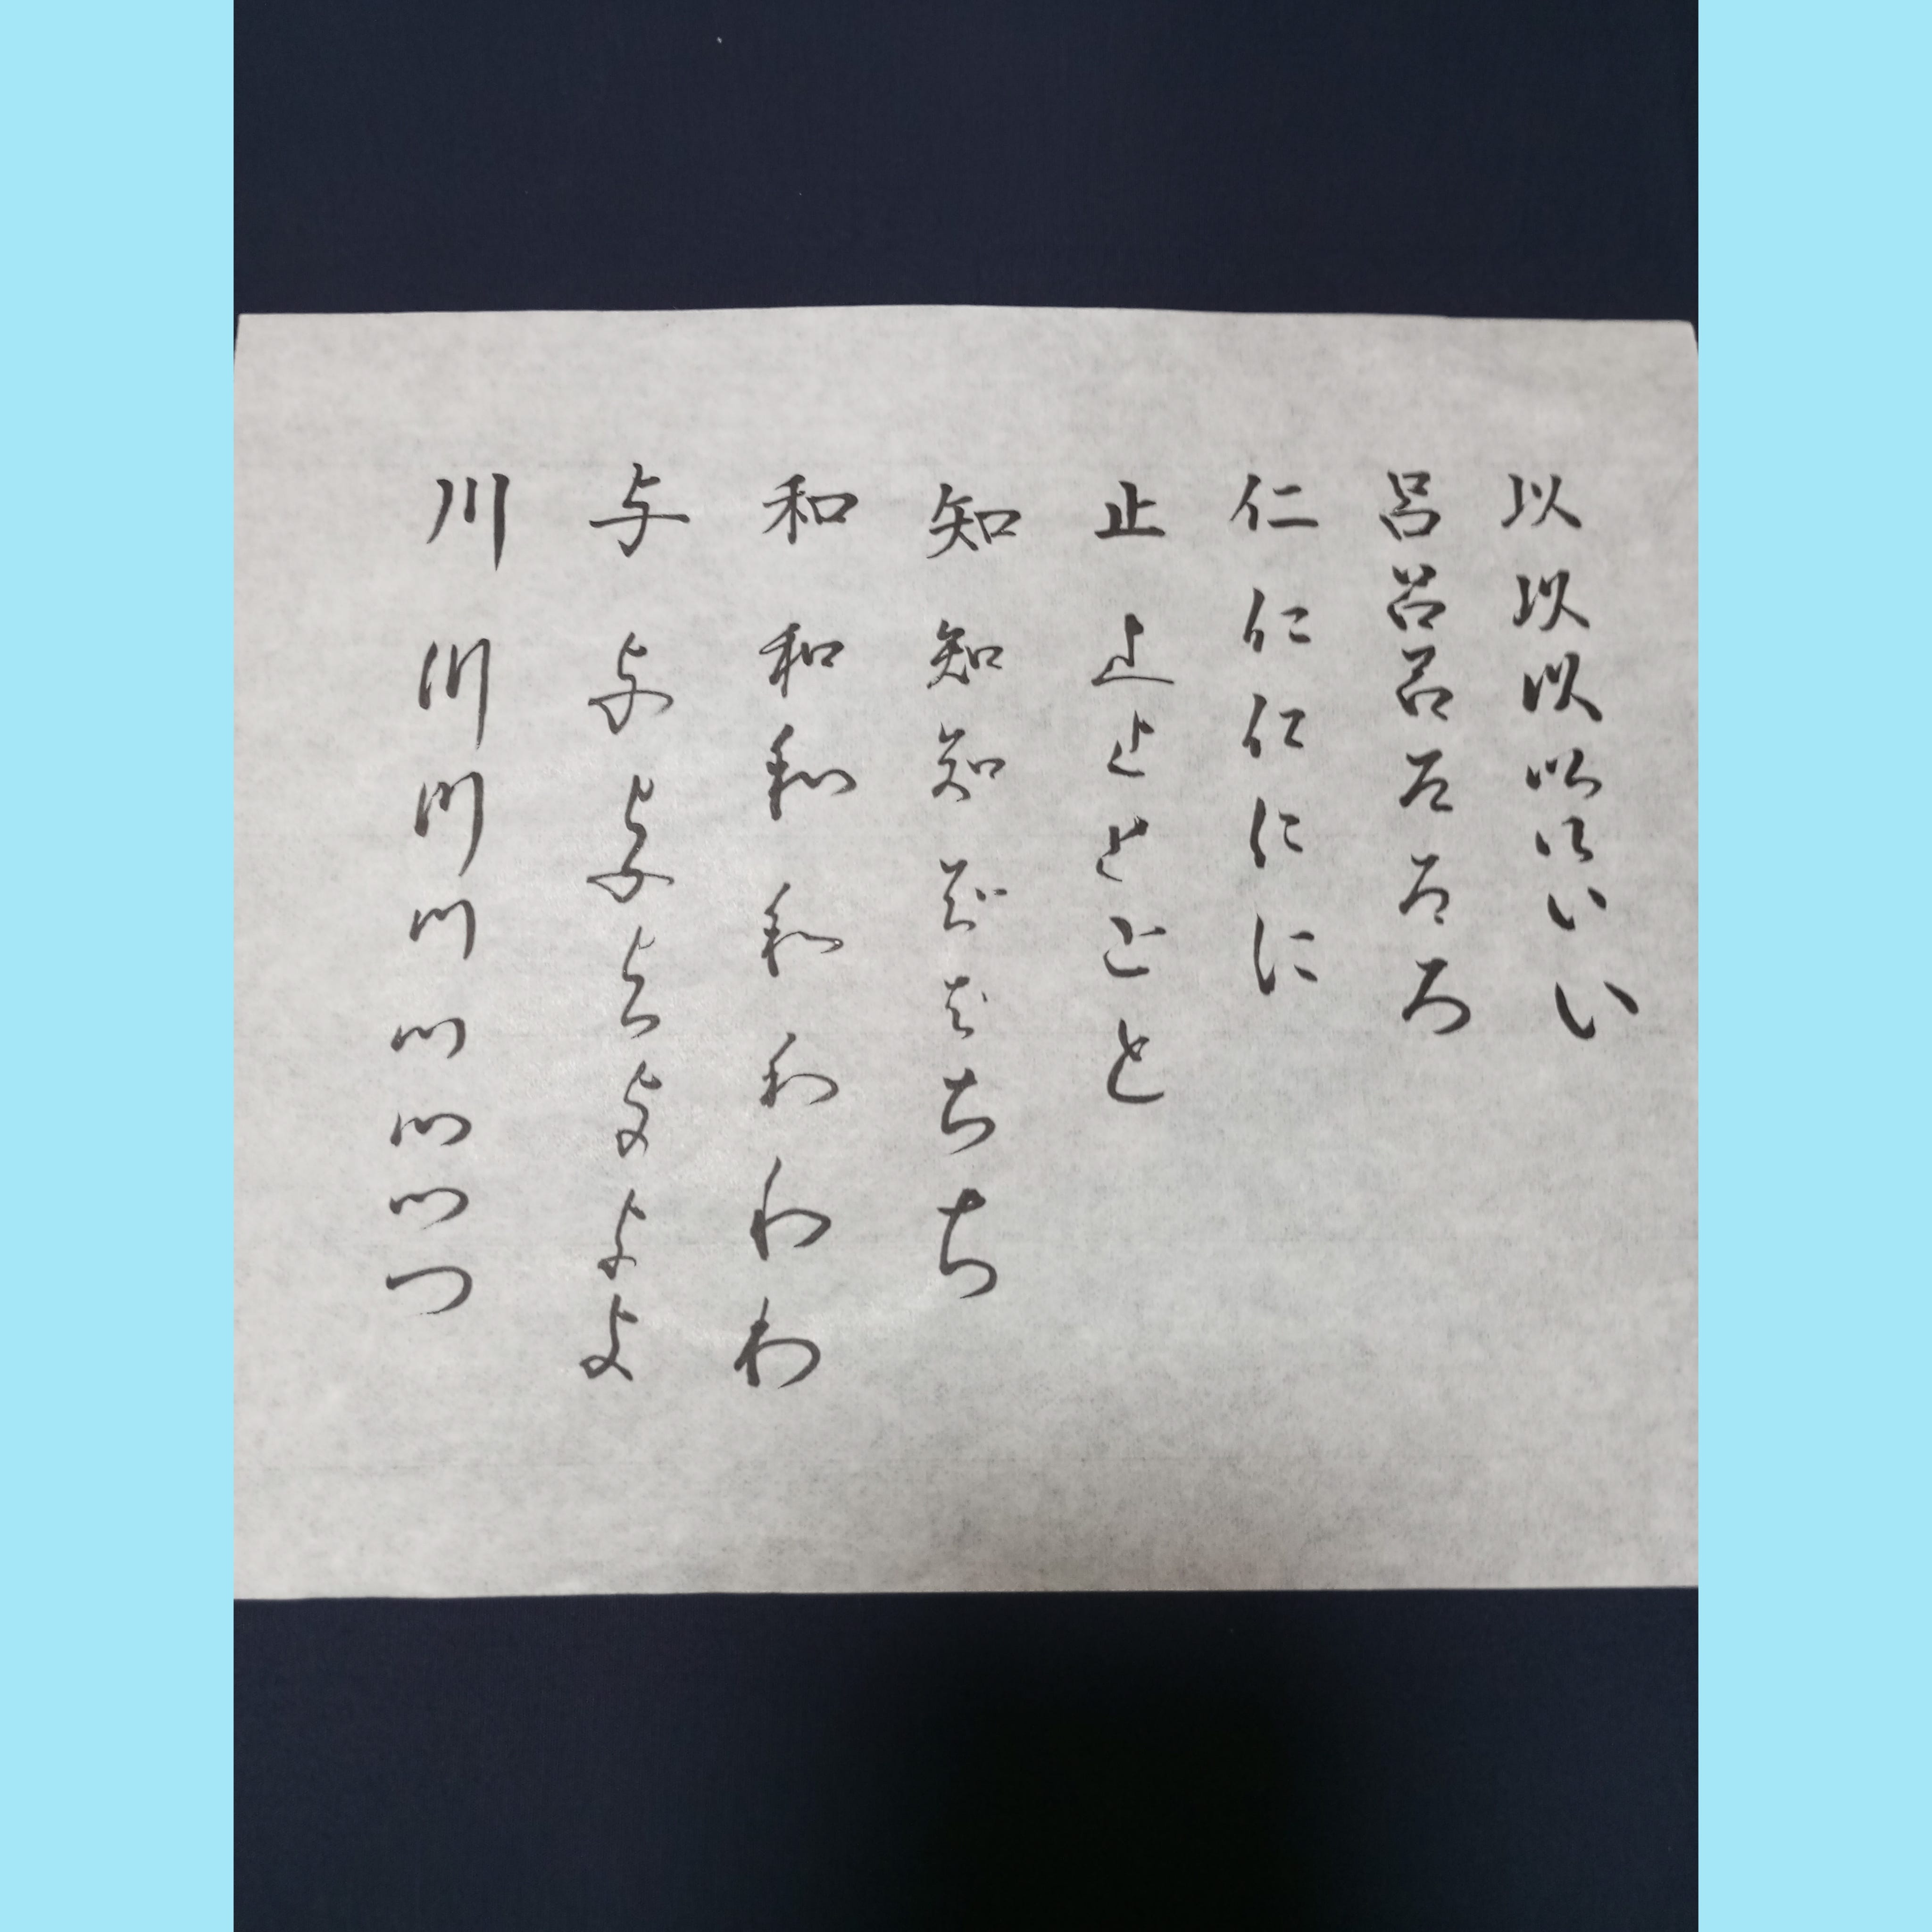 以以以以以いい
呂呂呂ろろろ
仁仁仁にに
止止止ととと
知知知知ちちち
和和和和わわわ
与与与与よよよ
川川川川川川川つ